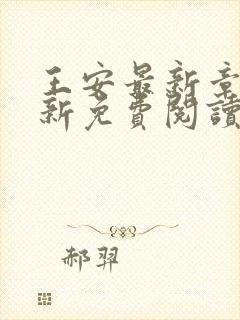 王安最新章
新免費閱讀
郝羿